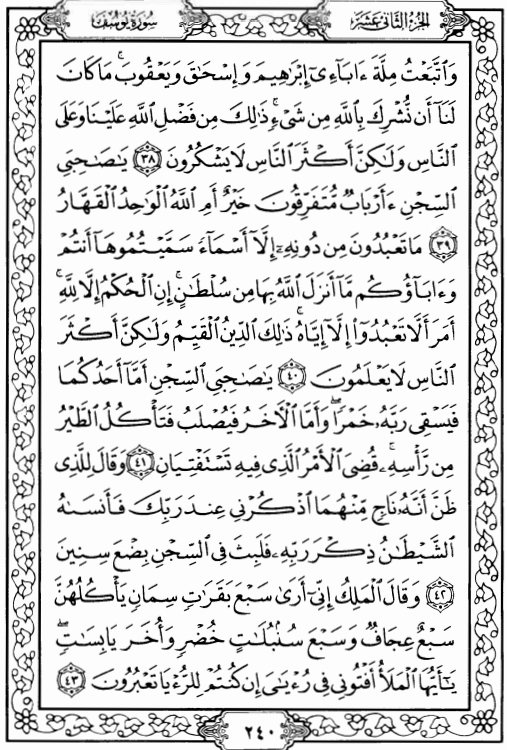 الجزء الثاني عشر
سورة يوسف
وَاتَّبَعْتُ مِلَّةَ ءَابَآءِىٓ إِبْرَٰهِيمَ وَإِسْحَٰقَ وَيَعْقُوبَ ۚ مَا كَانَ
لَنَآ أَن نُّشْرِكَ بِاللَّهِ مِن شَىْءٍ ۚ ذَٰلِكَ مِن فَضْلِ اللَّهِ عَلَيْنَا وَعَلَى
النَّاسِ وَلَٰكِنَّ أَكْثَرَ النَّاسِ لَا يَشْكُرُونَ ﴿٣٨﴾ يَٰصَٰحِبَىِ
السِّجْنِ ءَأَرْبَابٌ مُّتَفَرِّقُونَ خَيْرٌ أَمِ اللَّهُ الْوَٰحِدُ الْقَهَّارُ
﴿٣٩﴾ مَا تَعْبُدُونَ مِن دُونِهِۦٓ إِلَّآ أَسْمَآءً سَمَّيْتُمُوهَآ أَنتُمْ
وَءَابَآؤُكُم مَّآ أَنزَلَ اللَّهُ بِهَا مِن سُلْطَٰنٍ ۚ إِنِ الْحُكْمُ إِلَّا لِلَّهِ ۚ
أَمَرَ أَلَّا تَعْبُدُوٓا۟ إِلَّآ إِيَّاهُ ۚ ذَٰلِكَ الدِّينُ الْقَيِّمُ وَلَٰكِنَّ أَكْثَرَ
النَّاسِ لَا يَعْلَمُونَ ﴿٤٠﴾ يَٰصَٰحِبَىِ السِّجْنِ أَمَّآ أَحَدُكُمَا
فَيَسْقِى رَبَّهُۥ خَمْرًا ۖ وَأَمَّا الْأَخَرُ فَيُصْلَبُ فَتَأْكُلُ الطَّيْرُ
مِن رَّأْسِهِۦ ۚ قُضِىَ الْأَمْرُ الَّذِى فِيهِ تَسْتَفْتِيَانِ ﴿٤١﴾ وَقَالَ لِلَّذِى
ظَنَّ أَنَّهُۥ نَاجٍ مِّنْهُمَا اذْكُرْنِى عِندَ رَبِّكَ فَأَنسَىٰهُ
الشَّيْطَٰنُ ذِكْرَ رَبِّهِۦ فَلَبِثَ فِى السِّجْنِ بِضْعَ سِنِينَ
﴿٤٢﴾ وَقَالَ الْمَلِكُ إِنِّىٓ أَرَىٰ سَبْعَ بَقَرَٰتٍ سِمَانٍ يَأْكُلُهُنَّ
سَبْعٌ عِجَافٌ وَسَبْعَ سُنۢبُلَٰتٍ خُضْرٍ وَأُخَرَ يَابِسَٰتٍ ۖ
يَٰٓأَيُّهَا الْمَلَأُ أَفْتُونِى فِى رُءْيَٰىَ إِن كُنتُمْ لِلرُّءْيَا تَعْبُرُونَ ﴿٤٣﴾
٢٤٠